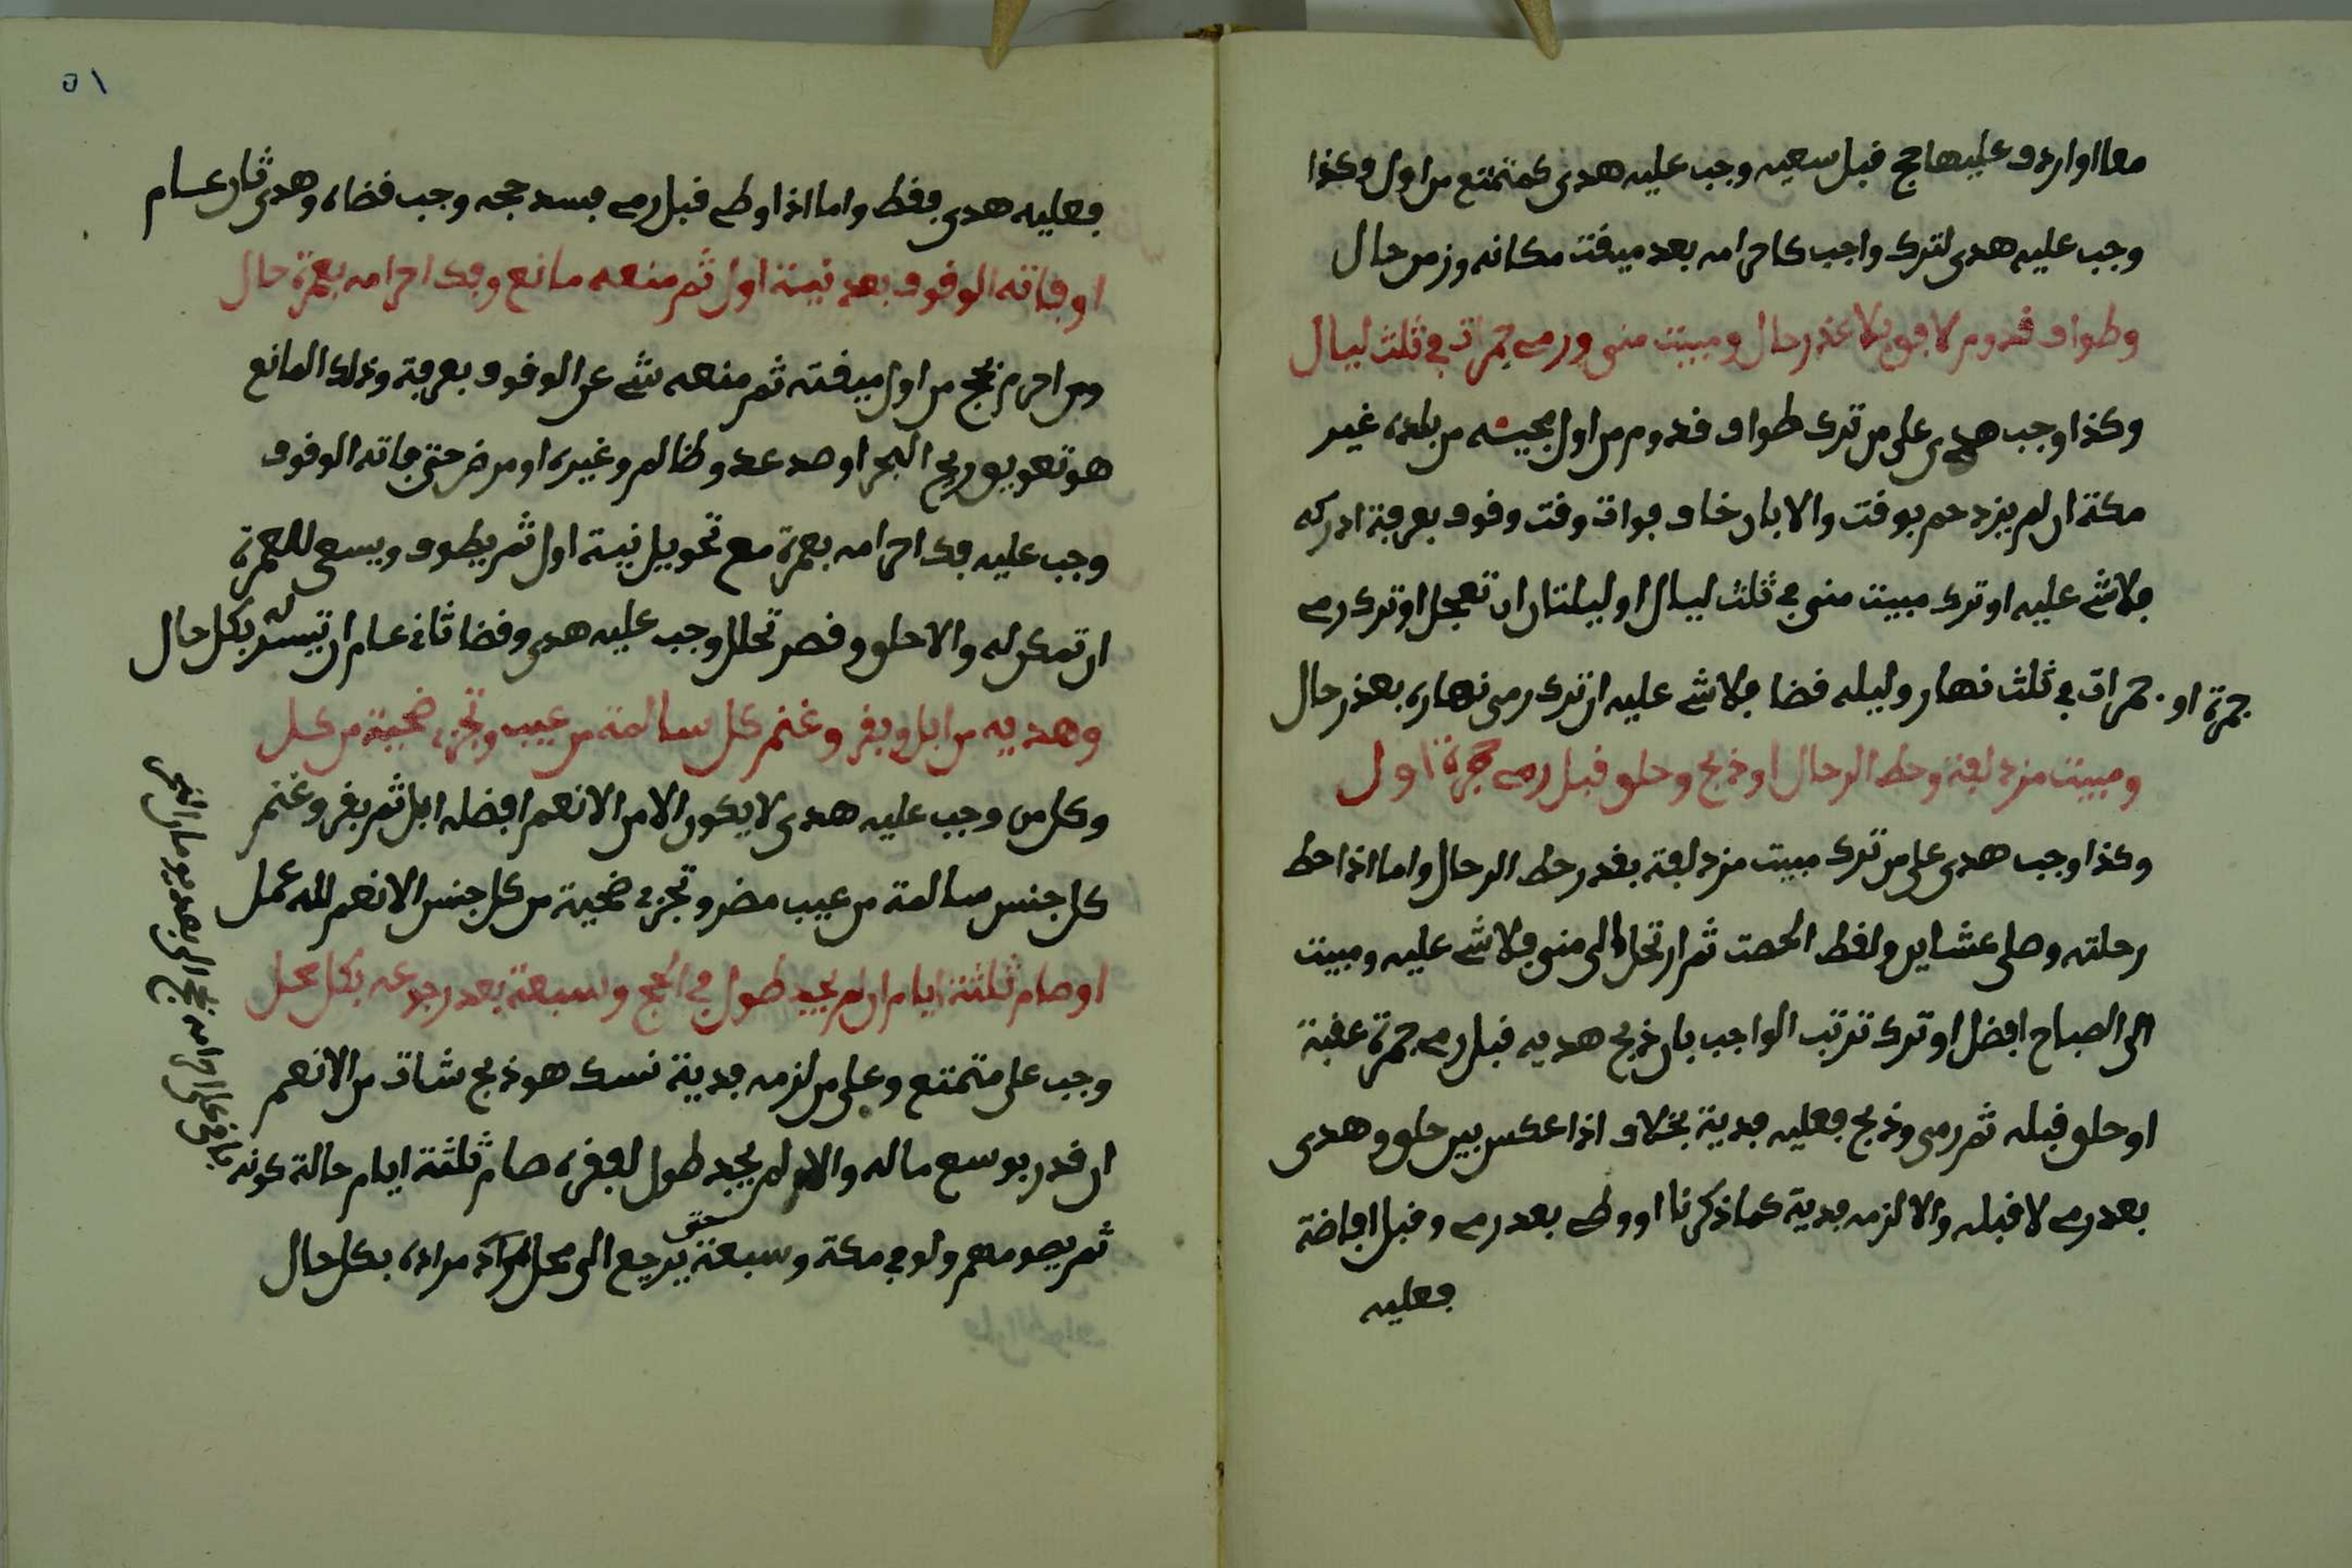 معا او اردف عليها حج قبل سعيه وجب عليه هدى كمتمتع من اول وكذا
وجب عليه هدى لترك واجب كاحرامه بعد ميقت مكانه وزمن حال
وطواف قدوم لافق بلا عذر حال ومبيت منى ورمى جمرات في ثلث ليال
وكذا وجب هدى على من ترك طواف قدوم من اول مجيئه من بلده غير
مكة ان لم يزدحم بوقت والا بان خاف فوات وقت وقوف بعرفة ادركه
فلا شى عليه او ترك مبيت منى في ثلث ليال او ليلتان ان تعجل او ترك رمى
جمرة او جمرات في ثلث نهار وليله قضا فلا شى عليه ان ترك رمى نهاره بعذر حال
ومبيت مزدلفة وحط الرحال او ذبح وحلق قبل رمى جمرة اول
وكذا وجب هدى على من ترك مبيت مزدلفة بقدر حط الرحال واما اذا حط
رحلته وصلى عشاين ولقط الحصت ثم ارتحل الى منى فلا شى عليه ومبيت
الى الصباح افضل او ترك ترتب الواجب بان ذبح هديه قبل رمى جمرة عقبة
او حلق قبله ثم رمى وذبح فعليه فدية بخلاف اذا عكس بين حلق وهدى
بعد رمى لا قبله والا لزمه فدية كما ذكرنا او وطى بعد رمى وقبل افاضة
فعليه
٥١
فعليه هدى فقط واما اذا وطى قبل رمى فسد حجه وجب قضاه وهدى ثان عام
او فاته الوقوف بعد نية اول ثم منعه مانع وفك احرامه بعمرة حال
ومن احرم بحج من اول ميقته ثم منعه شى عن الوقوف بعرفة وذلك المانع
هو تعويق ريح البحر او صد عدو ظالم وغيره او مرض حتى فاته الوقوف
وجب عليه فك احرامه بعمرة مع تحويل نية اول ثم يطوف ويسعى للعمرة
ان تمكن له والا حلق وقصر تحلل وجب عليه هدى وقضا ثانى عام ان تيسر له بكل حال
وهديه من ابل وبقر وغنم كل سالمة من عيب وتجزى ضحية من كل
وكل من وجب عليه هدى لا يكون الا من الانعم افضله ابل ثم بقر وغنم
كل جنس سالمة من عيب مضر وتجزى ضحية من كل جنس الانعم لله عمل
او صام ثلثة ايام ان لم يجد طول في الحج وسبعة بعد رجوعه بكل محل
وجب على متمتع وعلى من لزمه فدية نسك هو ذبح شات من الانعم
ان قدر بوسع ماله والا لم يجد طول لفقره صام ثلثة ايام حالة كونه
باق على احرامه بحج الى بعد يومان النحر
ثم يصومهم ولو في مكة وسبعة حتى يرجع الى محل مراده بكل حال